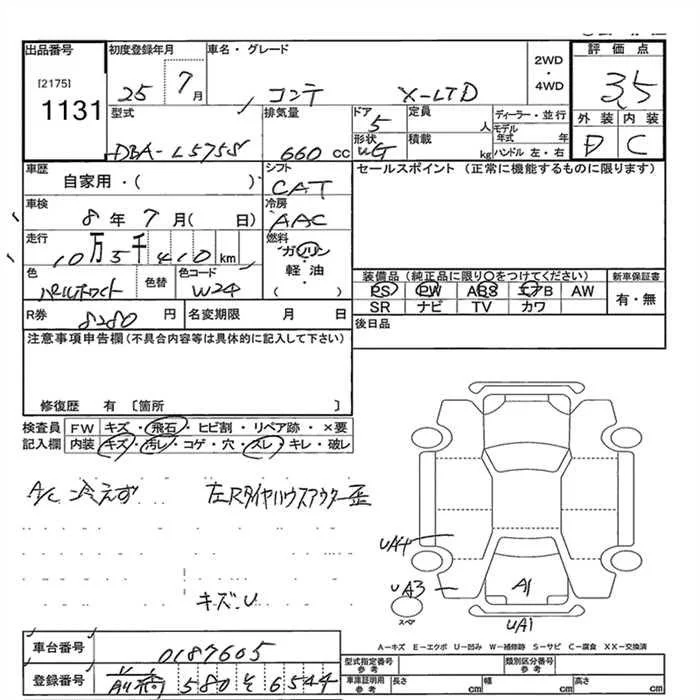 出品番号 初度登録年月 車名・グレード 2WD・4WD 評価点
[2175]
1131
25 7月 コンテ X-LTD 3.5
型式 排気量 ドア 定員 人 ディーラー・並行 外装 内装
DBA-L575S 660cc 5 形状 積載 kg モデル年式 年 ハンドル 左・右 D C
車歴 自家用・( ) シフト CAT セールスポイント(正常に機能するものに限ります)
車検 8年 7月( 日) 冷房 AAC
走行 10万5千410km 燃料 ガソリン・軽油 ( )
色 パールホワイト 色替 色コード W24
装備品(純正品に限り○をつけてください) 新車保証書
PS PW ABS エアB AW 有・無
SR ナビ TV カワ
R券 8280円 名変期限 月 日 後日品
注意事項申告欄(不具合内容等は具体的に記入して下さい)
修復歴 有〔箇所 〕
検査員記入欄 FW キズ・飛石・ヒビ割・リペア跡・×要
内装 キズ・汚レ・コゲ・穴・スレ・キレ・破レ
A/C 冷えず 左Rタイヤハウスアウター歪
キズ・U
UA4
UA3
A1
UA1
スペア
A-キズ E-エクボ U-凹み W-補修跡 S-サビ C-腐食 XX-交換済
車台番号 0187605
登録番号 前橋 580 そ 6544
型式指定番号 参考 類別区分番号 参考
車庫証明用 参考 長さ cm 幅 cm 高さ cm